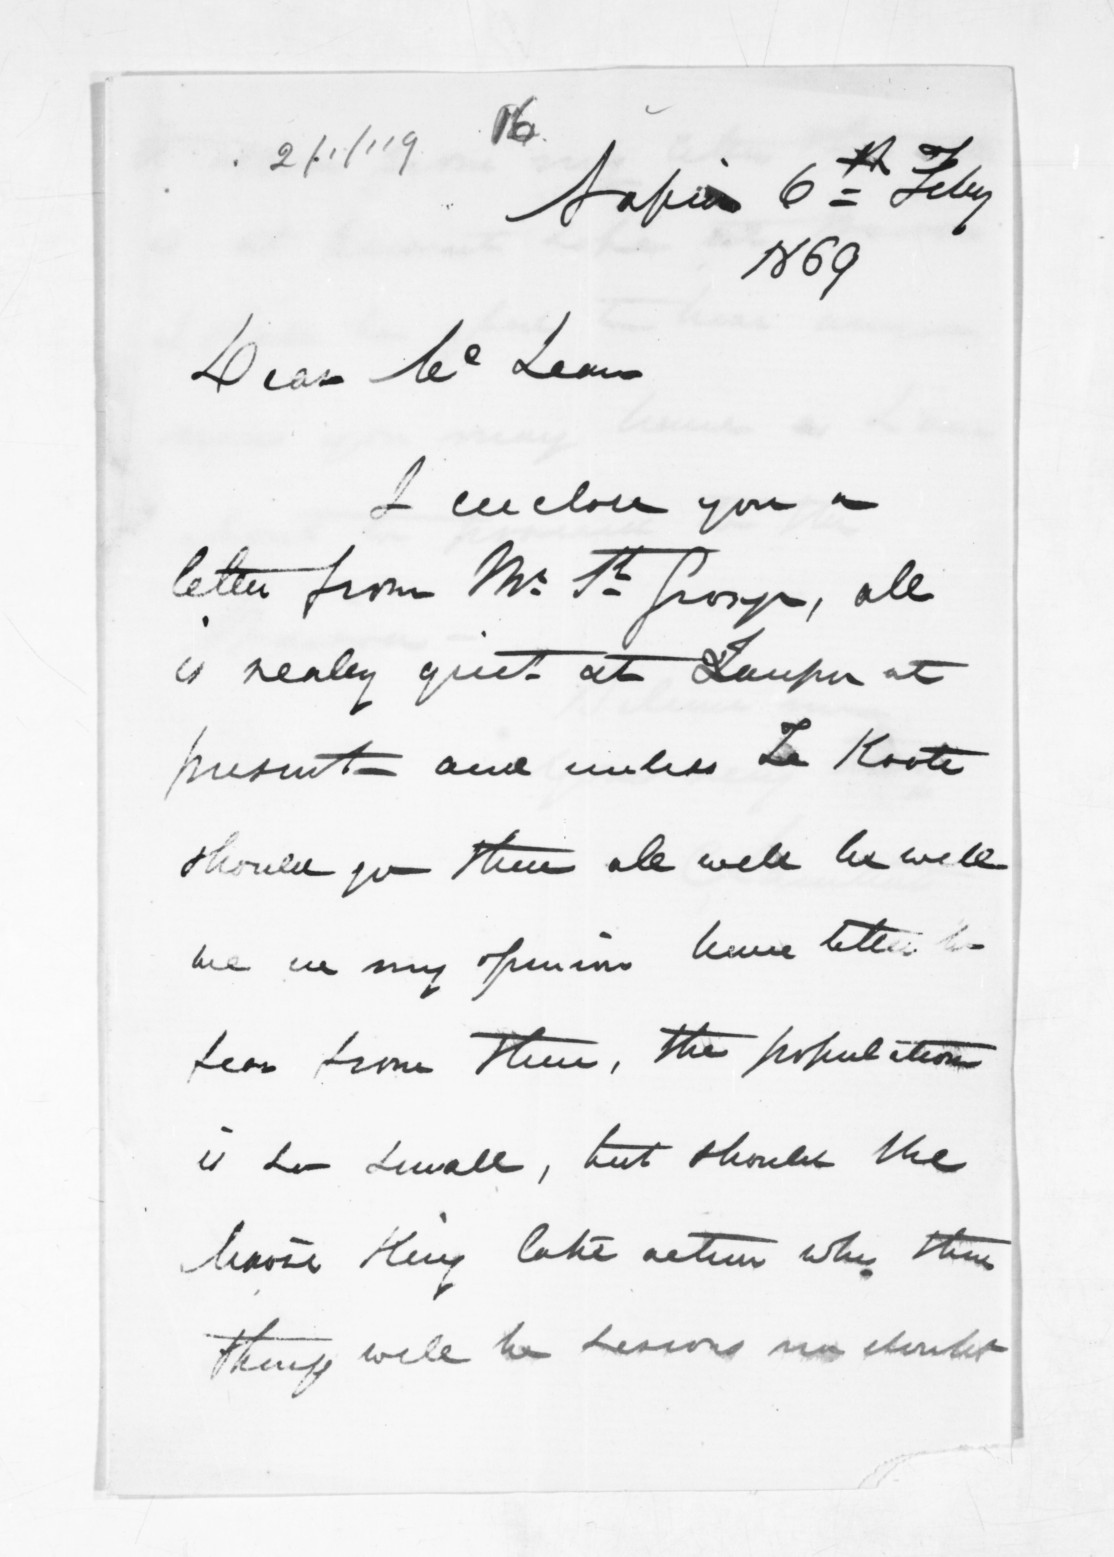 16
Napier 6th Feby
1869
Dear McLean
I enclose you a
letter from Mr St George, all
is really quiet at Taupo at
present and unless Te Kooti
should go there all will be well
we in my opinion have little to
fear from there, the population
is so small, but should the
Maori King take action why then
things will be serious no doubt